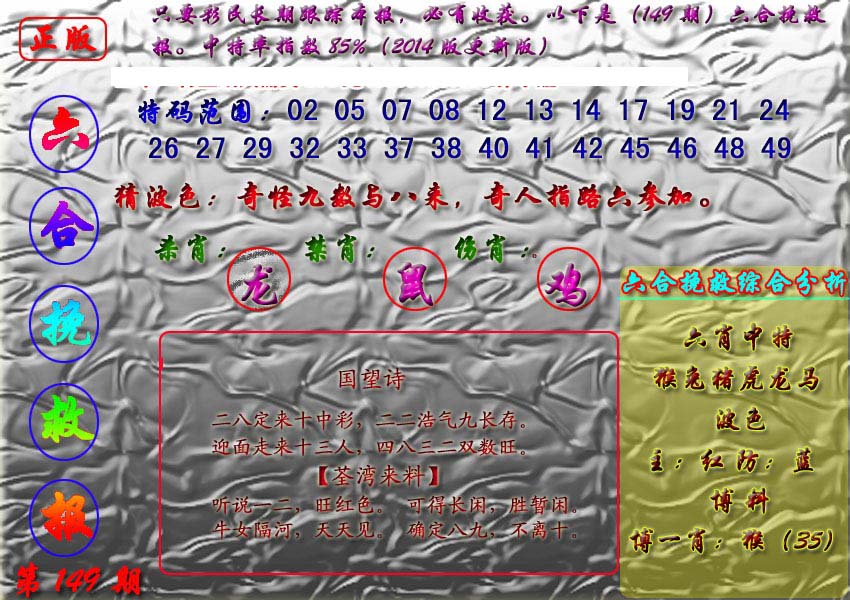 正版
只要彩民长期跟踪本报，必有收获。以下是（149期）六合挽救
报。中特率指数85%（2014版更新版）
特码范围：02 05 07 08 12 13 14 17 19 21 24
26 27 29 32 33 37 38 40 41 42 45 46 48 49
猜波色：奇怪九数与八来，奇人指路六参加。
杀肖：龙 禁肖：鼠 伤肖：鸡
六
合
挽
救
报
第149期
国望诗
二八定来十中彩，二二浩气九长存。
迎面走来十三人，四八三二双数旺。
【荃湾来料】
听说一二，旺红色。 可得长闲，胜暂闲。
牛女隔河，天天见。 确定八九，不离十。
六合挽救综合分析
六肖中特
猴兔猪虎龙马
波色
主：红防：蓝
博料
博一肖：猴（35）